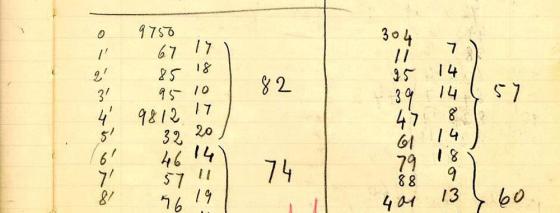 0 9750
1' 67 17
2' 85 18
3' 95 10
82
4' 9812 17
5' 32 20
6' 46 14
7' 57 11
74
8' 76 19
304
11 7
25 14
39 14
57
47 8
61 14
79 18
88 9
401 13
60